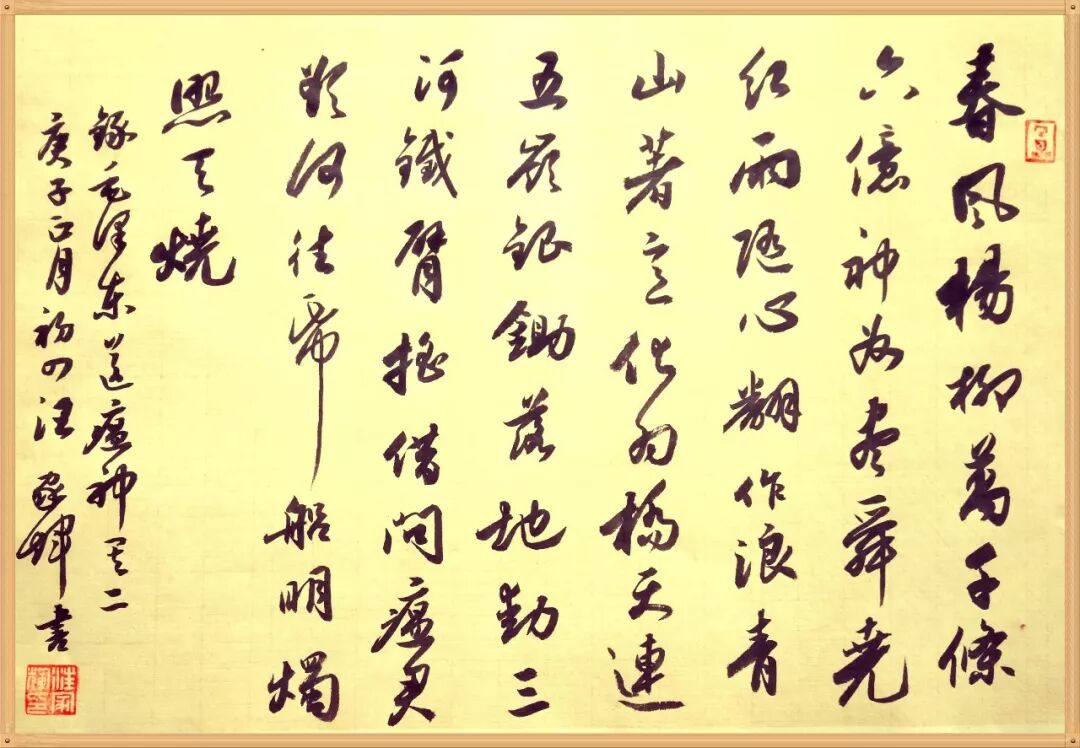 春風楊柳萬千條
六億神州盡舜堯
紅雨隨心翻作浪青
山著意化為橋天連
五嶺銀鋤落地動三
河鐵臂搖借問瘟君
欲何往紙船明燭
照天燒
錄毛澤東送瘟神其二
庚子正月初四汪家輝書
汪家輝印